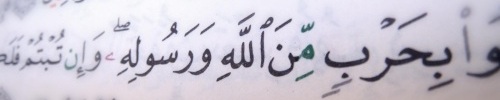 وا۟ بِحَرْبٍ مِّنَ ٱللَّهِ وَرَسُولِهِۦۖ وَإِن تُبْتُمْ